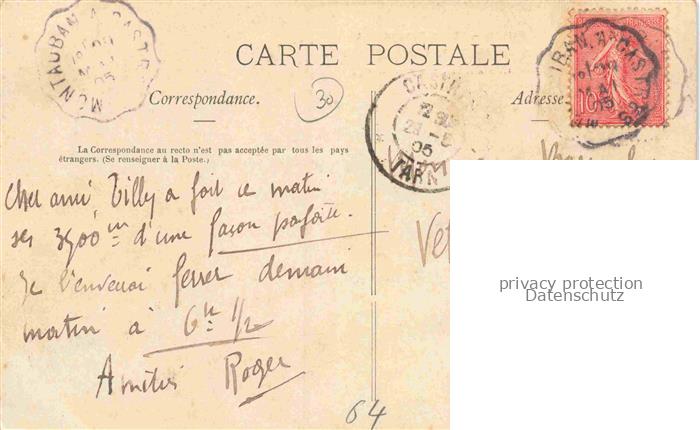 MONTAUBAN A CASTRES
05
CARTE POSTALE
FRANÇAISE
10
Correspondance.
30
CASTRES
TARN
05
Adresse
La Correspondance au recto n'est pas acceptée par tous les pays
étrangers. (Se renseigner à la Poste.)
Cher ami Tilly a fait ce matin
ses 3500m d'une façon parfaite.
Je l'enverrai ferrer demain
matin à 6h 1/2
Amitiés Roger
64
privacy protection
Datenschutz